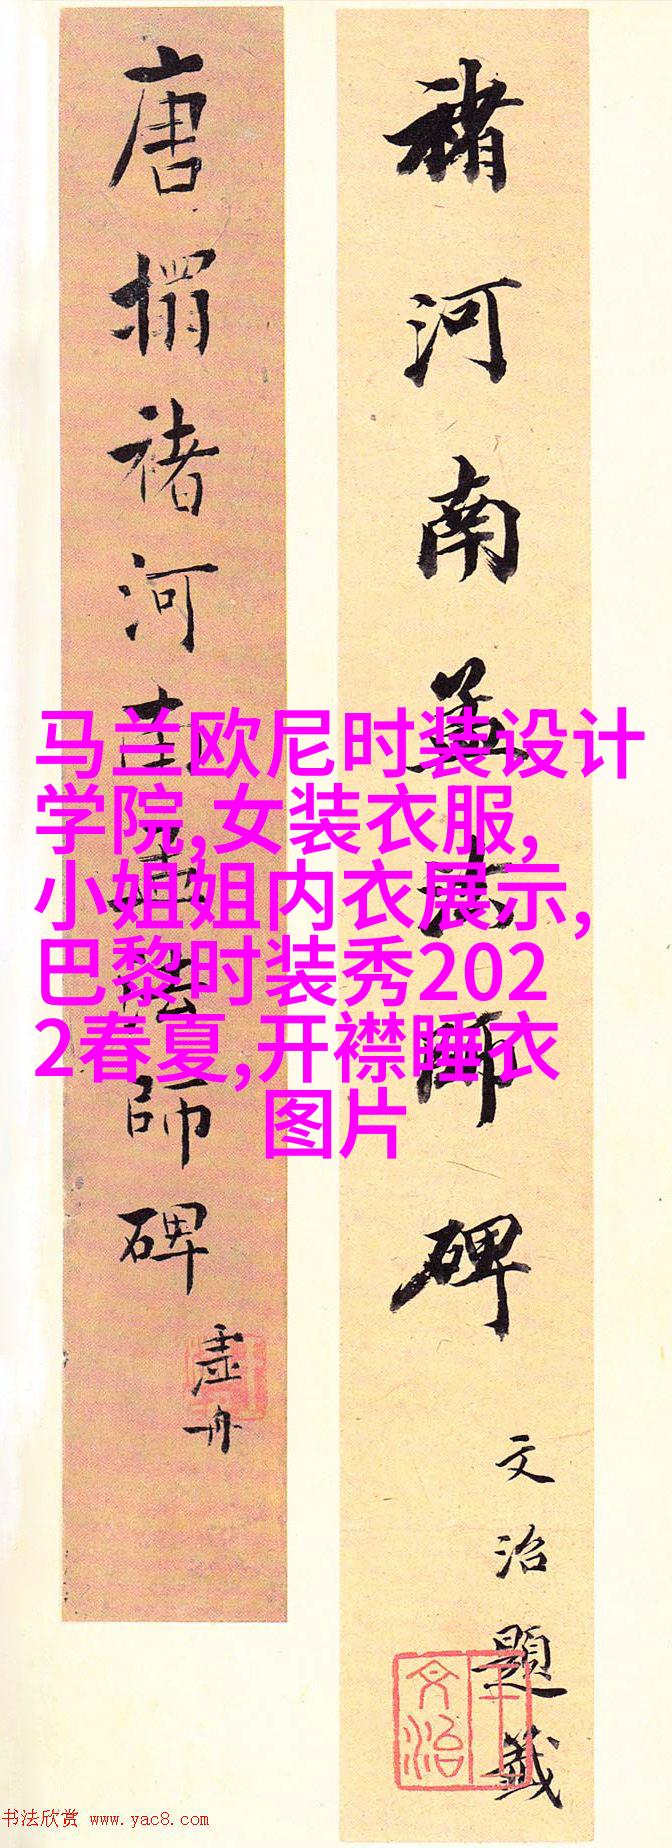 褚河南孟法師碑
文治題籤
王文治
唐搨褚河南孟法師碑
虚舟
马兰欧尼时装设计
学院,女装衣服,
小姐姐内衣展示,
巴黎时装秀202
2春夏,开襟睡衣
图片
书法欣赏 www.yac8.com